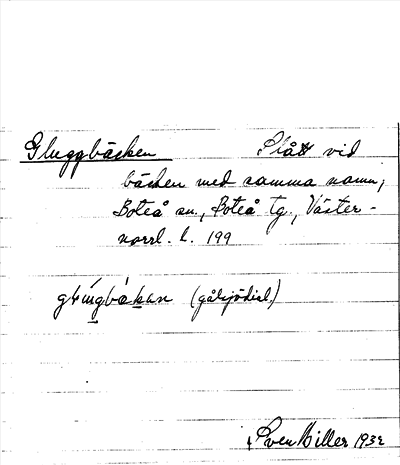 Gluggbäcken Slått vid
bäcken med samma namn,
Boteå sn., Boteå tg., Väster-
norrl. l. 199
(gålsjödial.)
Sven Miller 1932